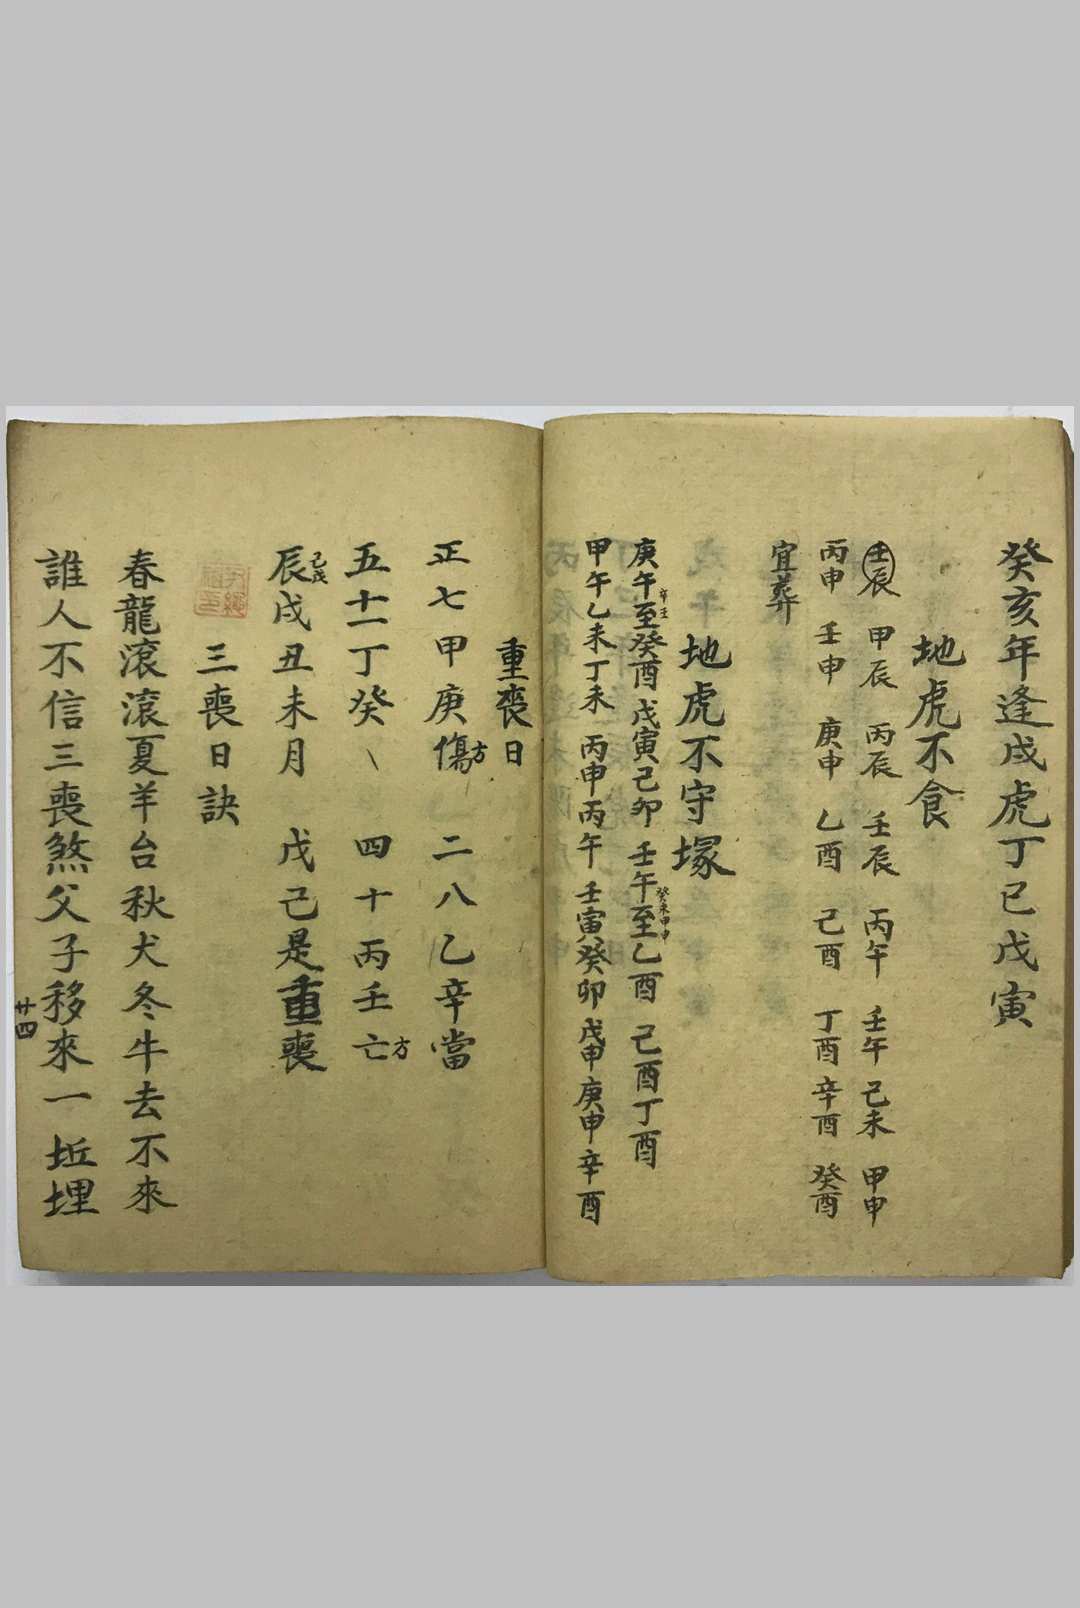 癸亥年逢戌虎丁巳戊寅
地虎不食
壬辰 甲辰 丙辰 壬辰 丙午 壬午 己未 甲申
丙申 壬申 庚申 乙酉 己酉 丁酉 辛酉 癸酉
宜葬
地虎不守塚
庚午至癸酉 戊寅己卯 壬午至乙酉 己酉丁酉
辛壬
癸未甲申
甲午乙未丁未 丙申丙午 壬寅癸卯 戊申庚申辛酉
重喪日
正七甲庚傷方 二八乙辛當
五十一丁癸、 四十丙壬亡方
辰戌丑未月 戊己是重喪
己戊
三喪日訣
春龍滚滚夏羊台秋犬冬牛去不來
誰人不信三喪煞父子移來一坵埋
廿四